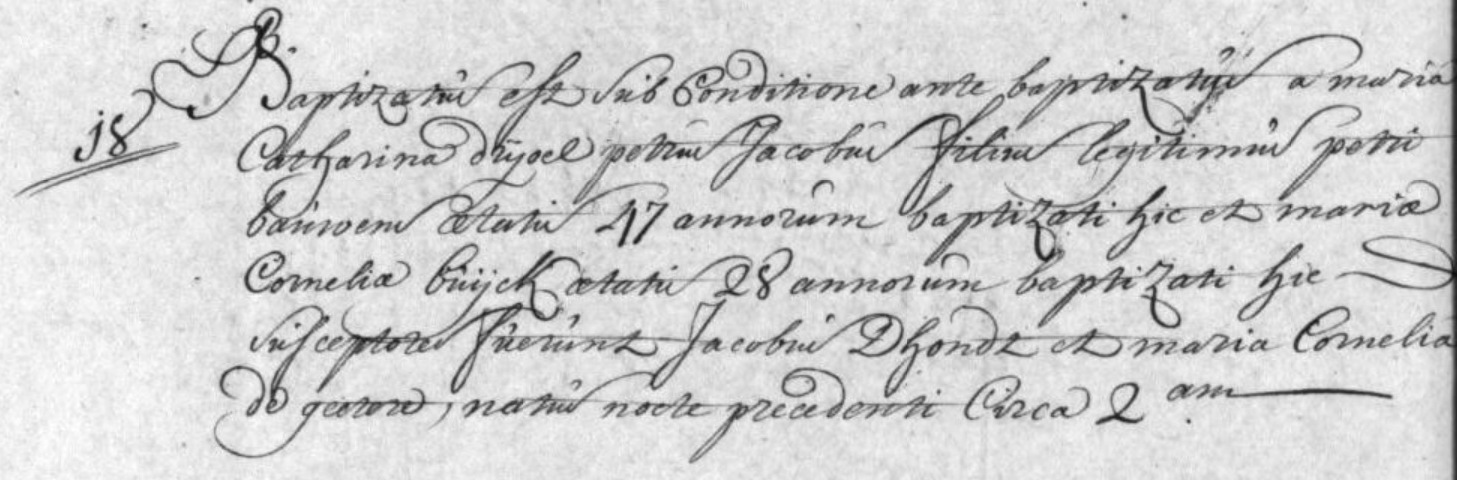 18 Baptizatus est sub Conditione ante baptizatus a maria
Catharina druÿoel petrus Jacobus filius legitimus petri
bauwens ætatis 47 annorum baptizati hic et mariæ
Corneliæ buÿck ætatis 28 annorum baptizati hic
susceptores fuerunt Jacobus Dhondt et maria Cornelia
de geetere, natus nocte precedenti Circa 2 am